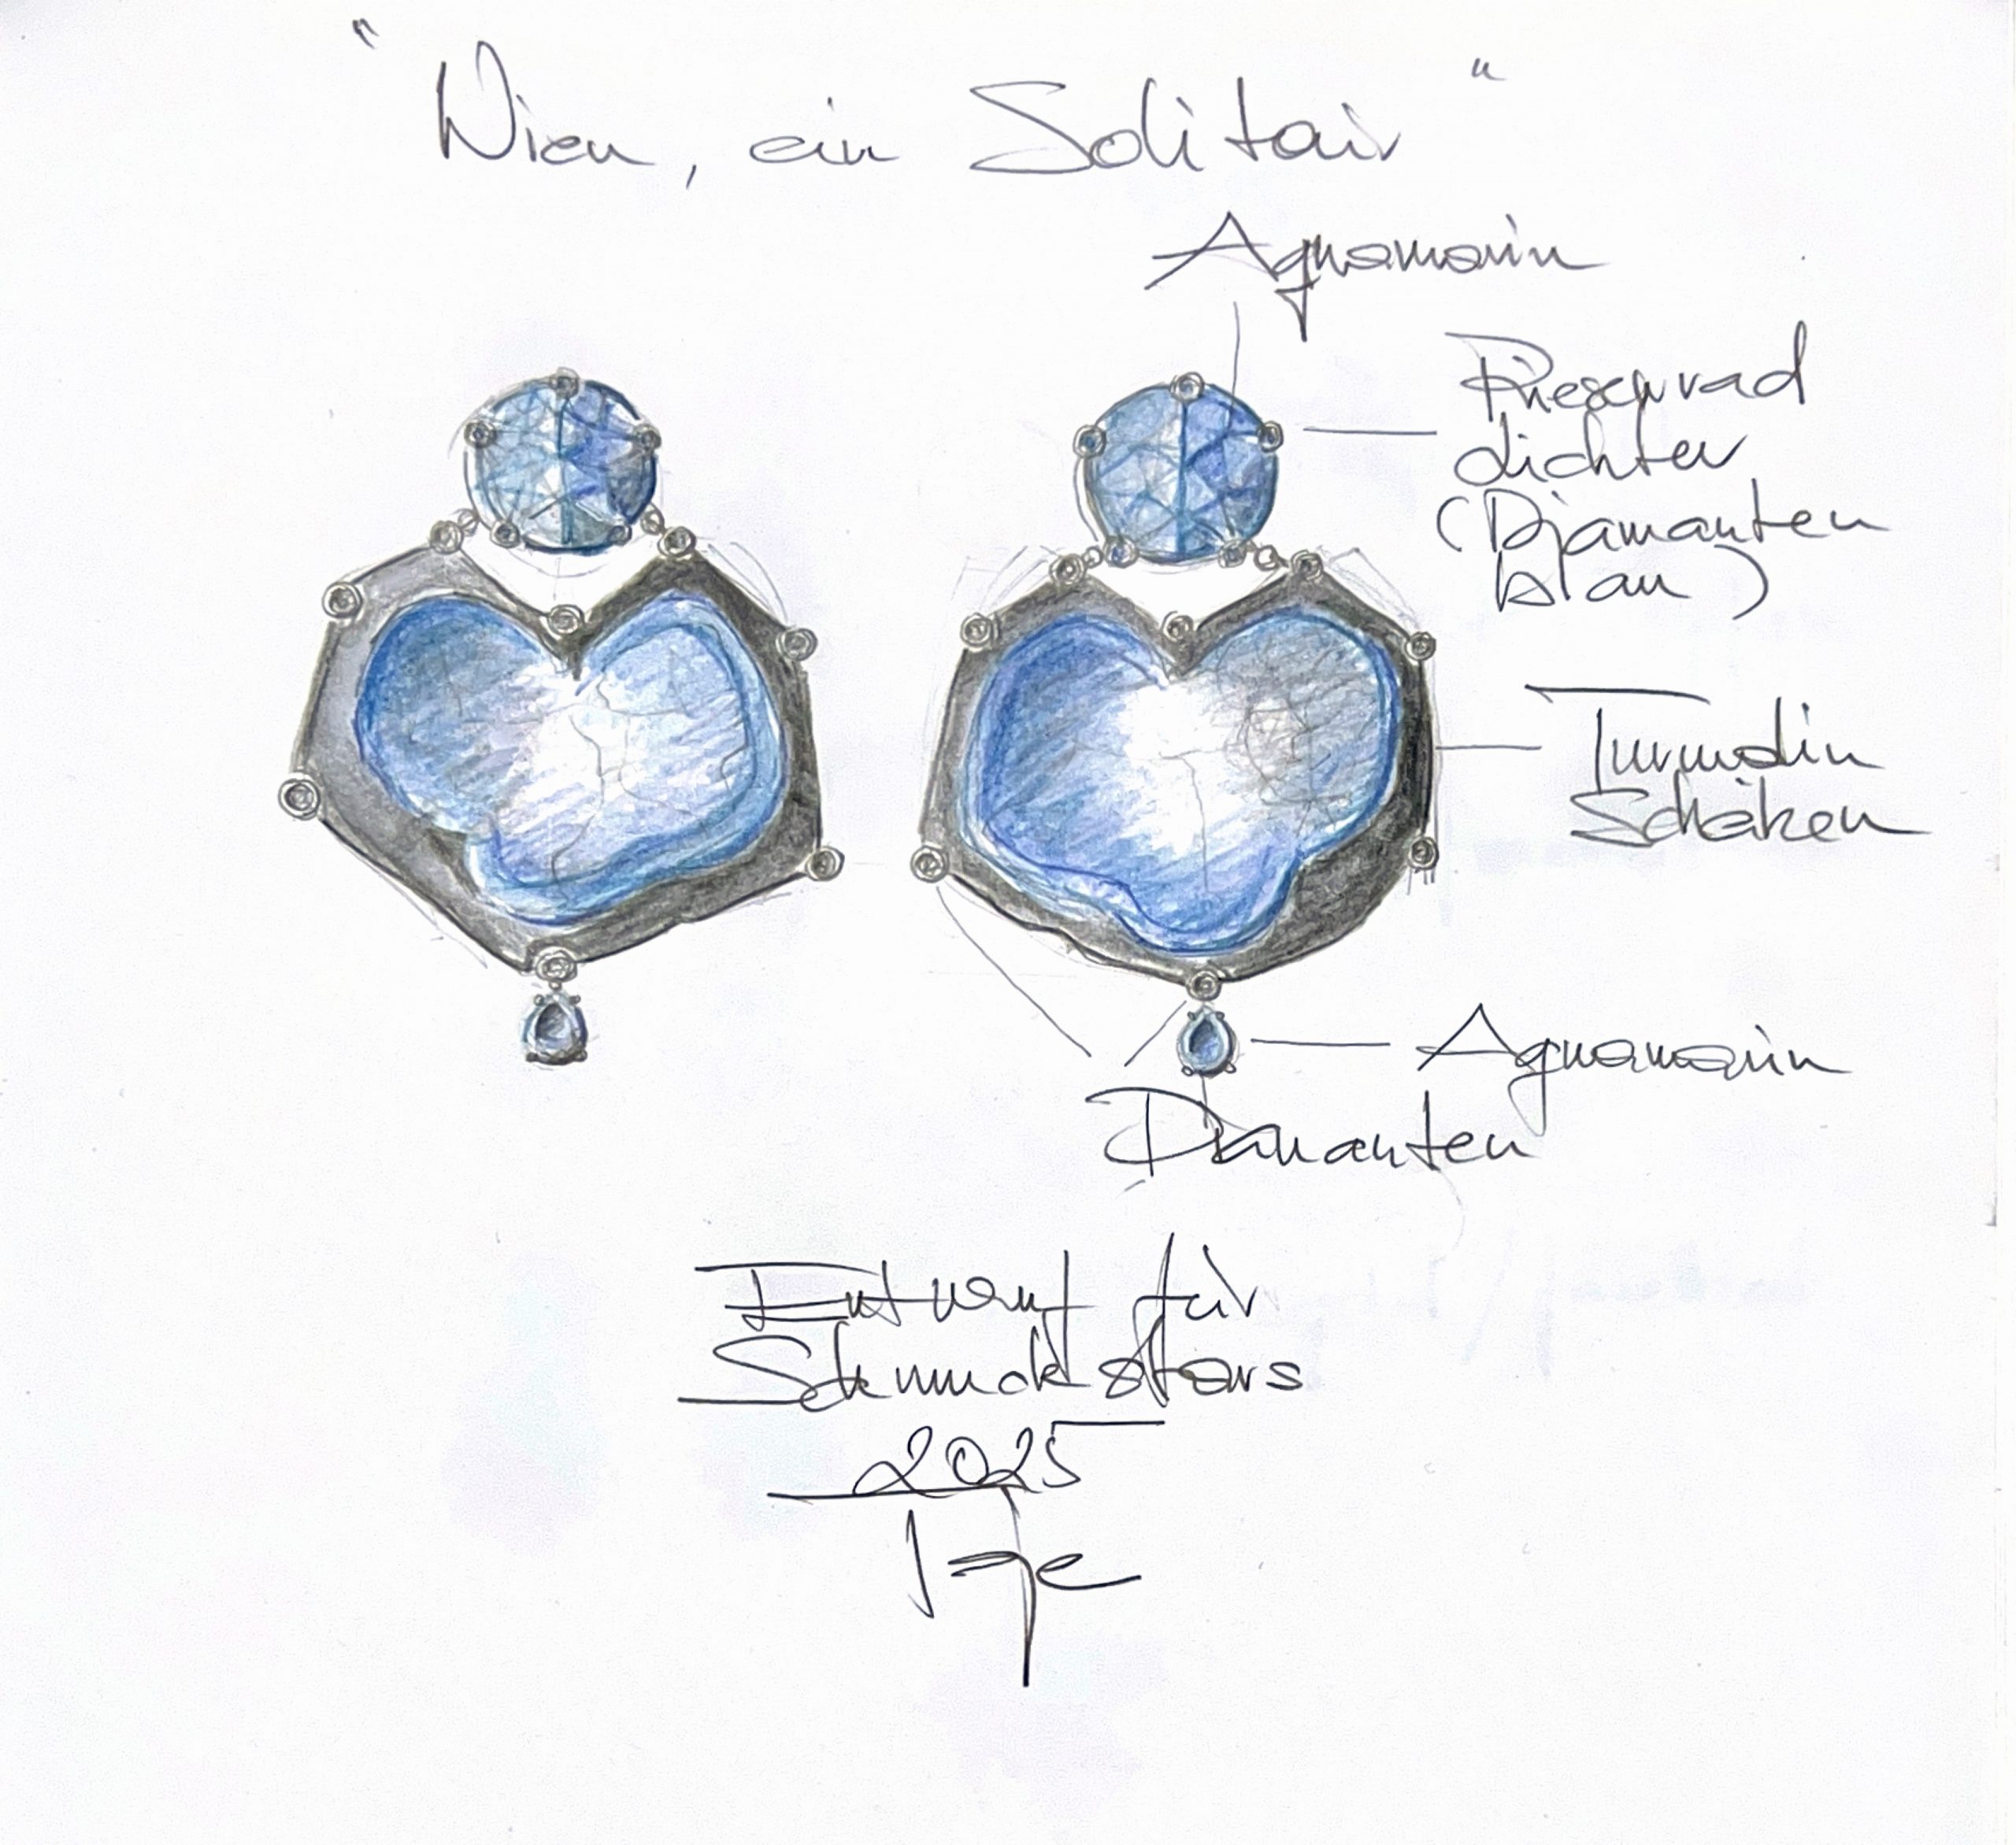 "Wien, ein Solitair"
Aquamarin
Riesenrad
dichter
(Diamanten
blau)
Turmalin
Scheiben
Aquamarin
Diamanten
Entwurf für
Schmuckstars
2025